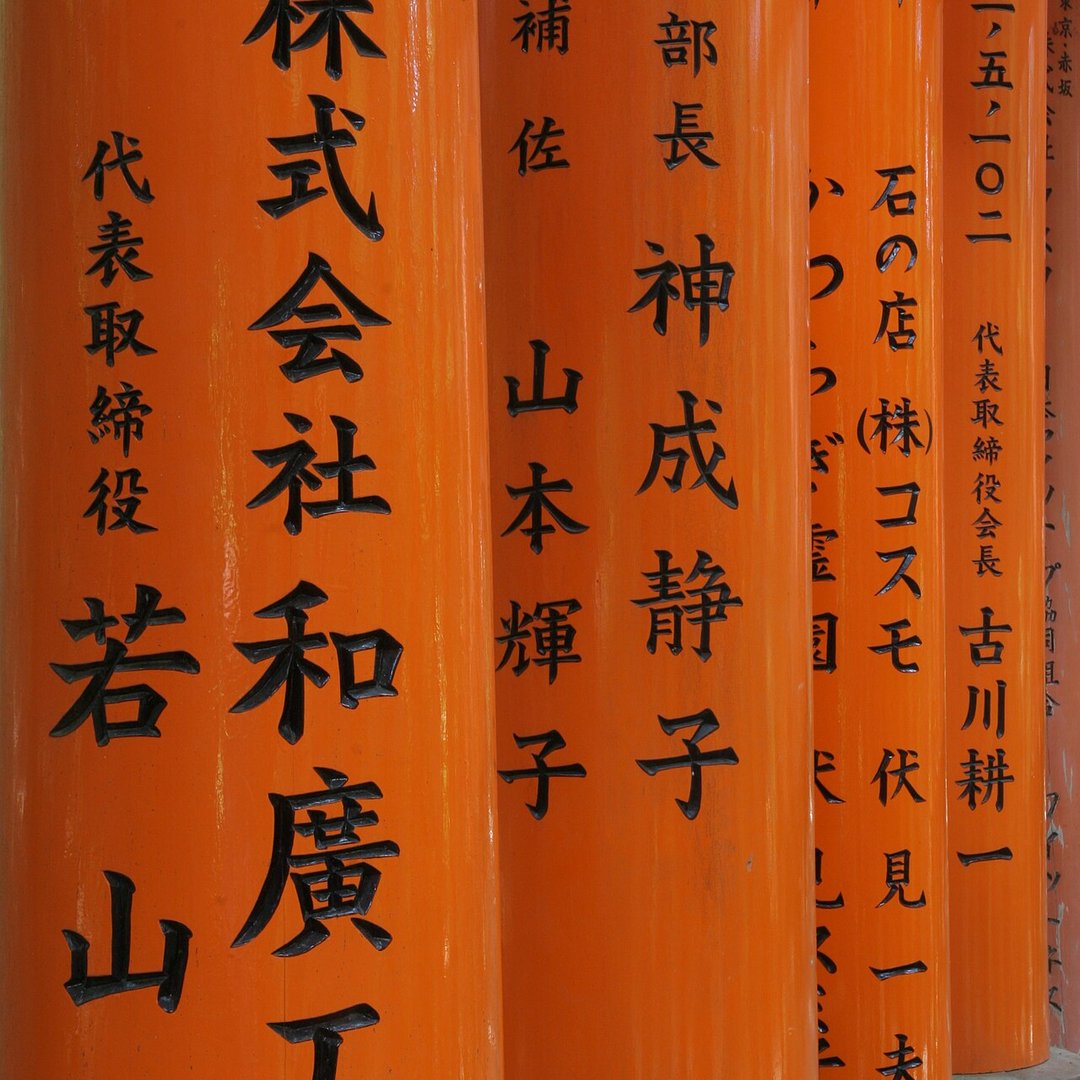 東京・赤坂
ノ五ノ一〇二
代表取締役会長 古川耕一
石の店 (株)コスモ 伏見一夫
ぎ霊園 伏見
部長 神成静子
補佐 山本輝子
株式会社和廣
代表取締役 若山